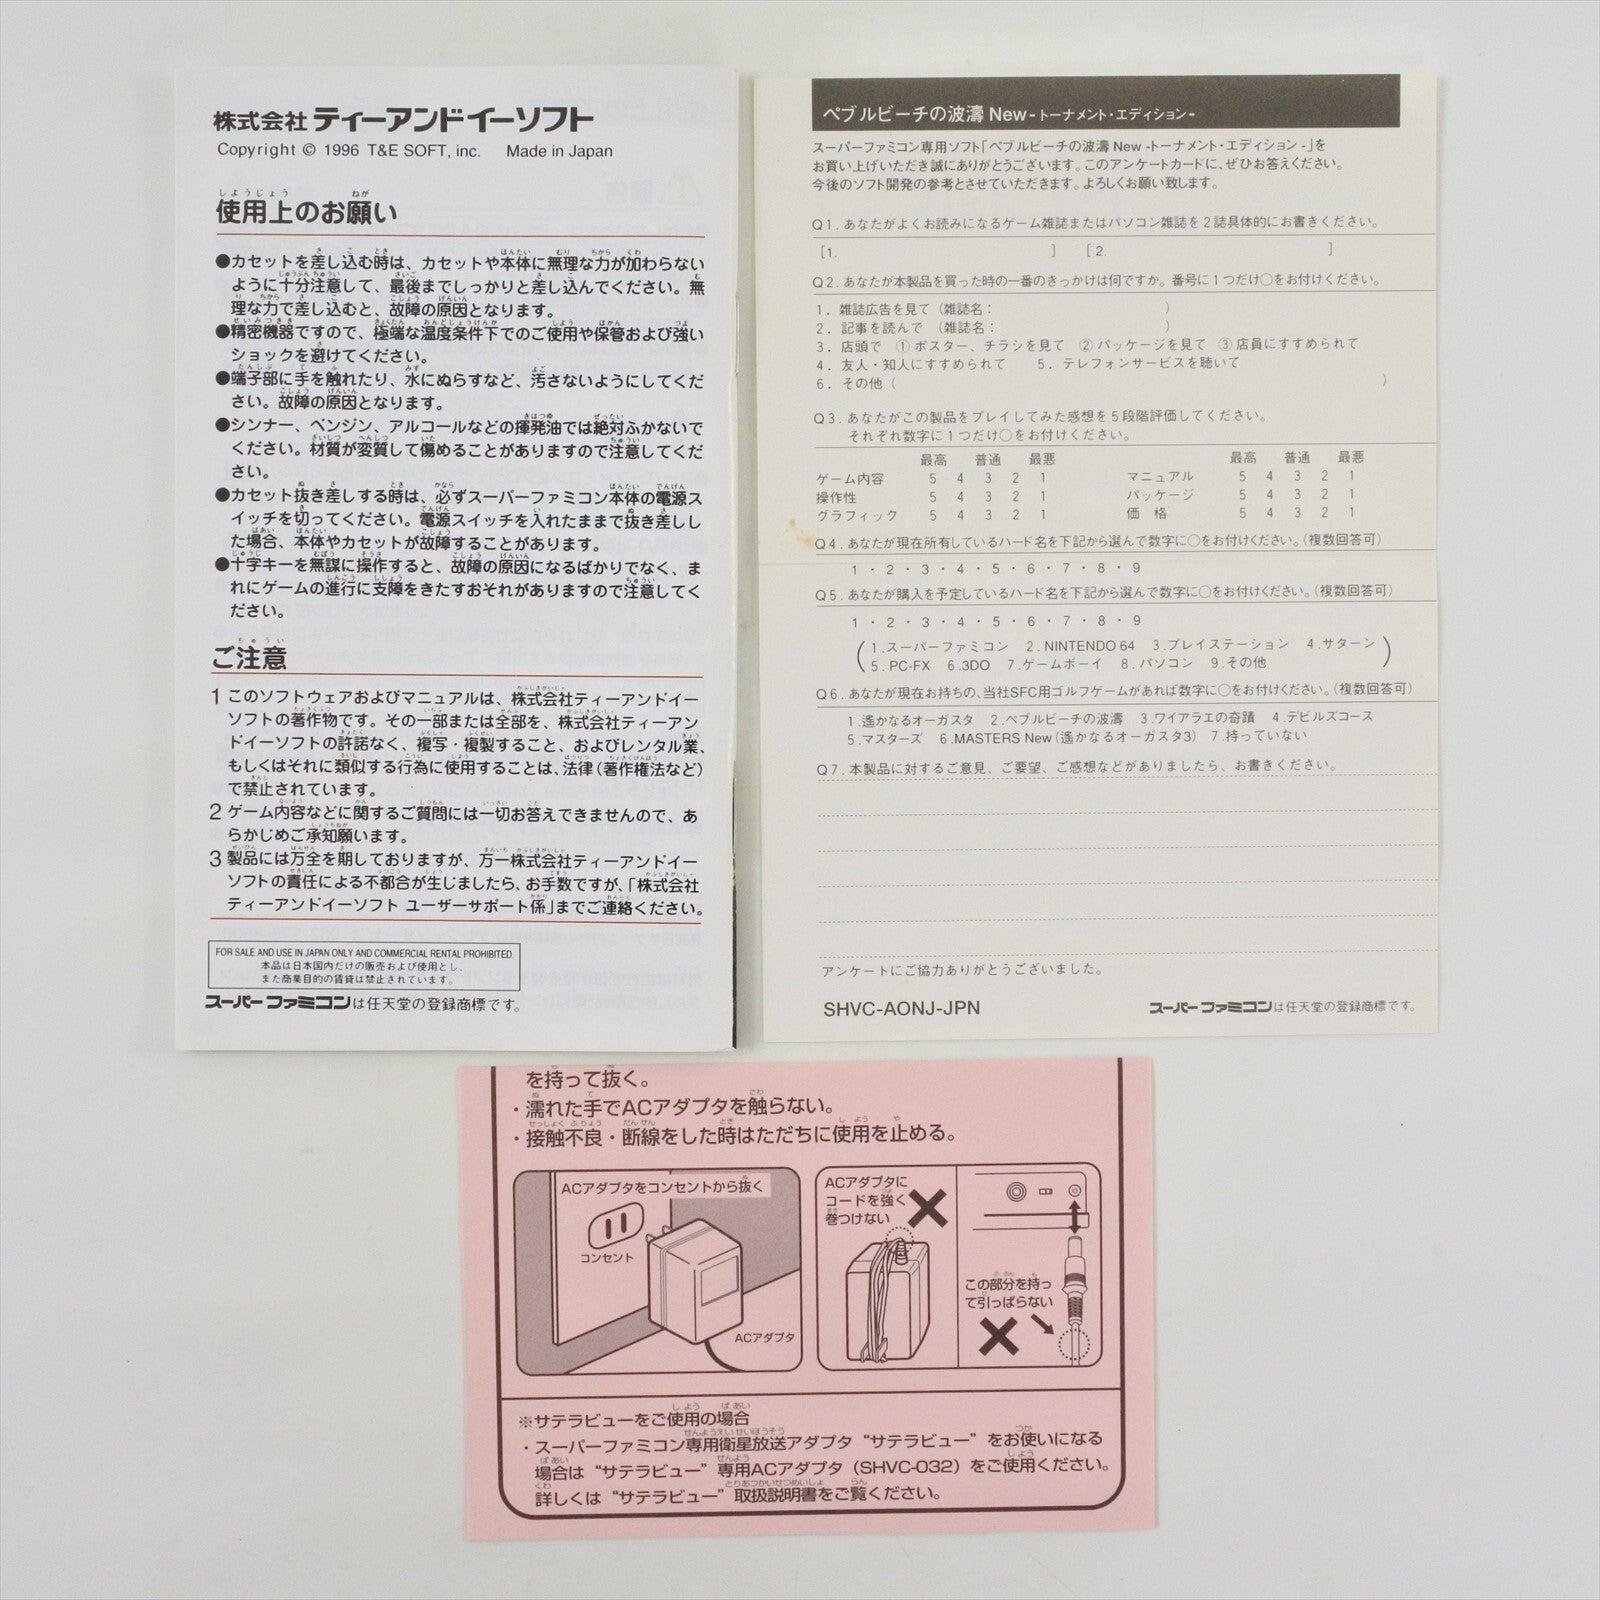 株式会社 ティーアンドイーソフト
Copyright © 1996 T&E SOFT, inc. Made in Japan
使用上のお願い
●カセットを差し込む時は、カセットや本体に無理な力が加わらない
ように十分注意して、最後までしっかりと差し込んでください。無
理な力で差し込むと、故障の原因となります。
●精密機器ですので、極端な温度条件下でのご使用や保管および強い
ショックを避けてください。
●端子部に手を触れたり、水にぬらすなど、汚さないようにしてくだ
さい。故障の原因となります。
●シンナー、ベンジン、アルコールなどの揮発油では絶対ふかないで
ください。材質が変質して傷めることがありますので注意してくだ
さい。
●カセット抜き差しする時は、必ずスーパーファミコン本体の電源ス
イッチを切ってください。電源スイッチを入れたままで抜き差しし
た場合、本体やカセットが故障することがあります。
●十字キーを無謀に操作すると、故障の原因になるばかりでなく、ま
れにゲームの進行に支障をきたすおそれがありますので注意してく
ださい。
ご注意
1 このソフトウェアおよびマニュアルは、株式会社ティーアンドイー
ソフトの著作物です。その一部または全部を、株式会社ティーアン
ドイーソフトの許諾なく、複写・複製すること、およびレンタル業、
もしくはそれに類似する行為に使用することは、法律（著作権法など）
で禁止されています。
2 ゲーム内容などに関するご質問には一切お答えできませんので、あ
らかじめご承知願います。
3 製品には万全を期しておりますが、万一株式会社ティーアンドイー
ソフトの責任による不都合が生じましたら、お手数ですが、「株式会社
ティーアンドイーソフト ユーザーサポート係」までご連絡ください。
FOR SALE AND USE IN JAPAN ONLY AND COMMERCIAL RENTAL PROHIBITED.
本品は日本国内だけの販売および使用とし、
また商業目的の賃貸は禁止されています。
スーパーファミコンは任天堂の登録商標です。
ペブルビーチの波濤 New -トーナメント・エディション-
スーパーファミコン専用ソフト「ペブルビーチの波濤 New -トーナメント・エディション-」を
お買い上げいただき誠にありがとうございます。このアンケートカードに、ぜひお答えください。
今後のソフト開発の参考とさせていただきます。よろしくお願い致します。
Q1. あなたがよくお読みになるゲーム雑誌またはパソコン雑誌を2誌具体的にお書きください。
[1. ] [2. ]
Q2. あなたが本製品を買った時の一番のきっかけは何ですか。番号に1つだけ○をお付けください。
1. 雑誌広告を見て（雑誌名： ）
2. 記事を読んで（雑誌名： ）
3. 店頭で ①ポスター、チラシを見て ②パッケージを見て ③店員にすすめられて
4. 友人・知人にすすめられて 5. テレフォンサービスを聴いて
6. その他（ ）
Q3. あなたがこの製品をプレイしてみた感想を5段階評価してください。
それぞれ数字に1つだけ○をお付けください。
最高 普通 最悪 最高 普通 最悪
ゲーム内容 5 4 3 2 1 マニュアル 5 4 3 2 1
操作性 5 4 3 2 1 パッケージ 5 4 3 2 1
グラフィック 5 4 3 2 1 価格 5 4 3 2 1
Q4. あなたが現在所有しているハード名を下記から選んで数字に○をお付けください。（複数回答可）
1・2・3・4・5・6・7・8・9
Q5. あなたが購入を予定しているハード名を下記から選んで数字に○をお付けください。（複数回答可）
1・2・3・4・5・6・7・8・9
(1. スーパーファミコン 2. NINTENDO 64 3. プレイステーション 4. サターン
5. PC-FX 6. 3DO 7. ゲームボーイ 8. パソコン 9. その他)
Q6. あなたが現在お持ちの、当社SFC用ゴルフゲームがあれば数字に○をお付けください。（複数回答可）
1. 遙かなるオーガスタ 2. ペブルビーチの波濤 3. ワイアラエの奇蹟 4. デビルズコース
5. マスターズ 6. MASTERS New（遙かなるオーガスタ3） 7. 持っていない
Q7. 本製品に対するご意見、ご要望、ご感想などがありましたら、お書きください。
アンケートにご協力ありがとうございました。
SHVC-AONJ-JPN
スーパーファミコンは任天堂の登録商標です。
を持って抜く。
・濡れた手でACアダプタを触らない。
・接触不良・断線をした時はただちに使用を止める。
ACアダプタをコンセントから抜く
コンセント
ACアダプタ
ACアダプタに
コードを強く
巻つけない
この部分を持っ
て引っぱらない
※サテラビューをご使用の場合
・スーパーファミコン専用衛星放送アダプタ“サテラビュー”をお使いになる
場合は“サテラビュー”専用ACアダプタ（SHVC-032）をご使用ください。
詳しくは“サテラビュー”取扱説明書をご覧ください。